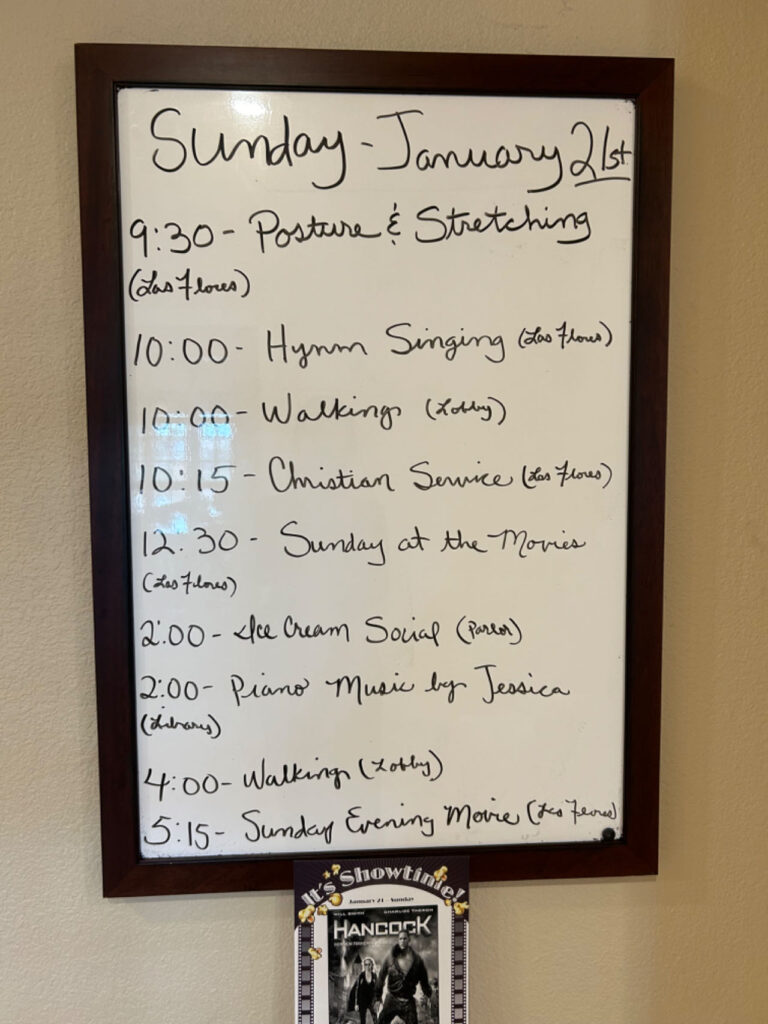 Sunday - January 21st
9:30 - Posture & Stretching
(Las Flores)
10:00 - Hymn Singing (Las Flores)
10:00 - Walking (Lobby)
10:15 - Christian Service (Las Flores)
12:30 - Sunday at the Movies
(Las Flores)
2:00 - Ice Cream Social (Parlor)
2:00 - Piano Music by Jessica
(Library)
4:00 - Walking (Lobby)
5:15 - Sunday Evening Movie (Las Flores)
It's Showtime!
January 21 - Sunday
WILL SMITH CHARLIZE THERON
HANCOCK